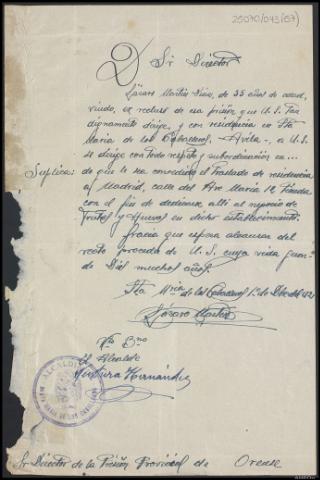 25070/043(67)
Sr Director
Lázaro Martín Díaz, de 35 años de edad,
viudo, ex recluso de esa prisión que U. S. tan
dignamente dirige, y con residencia en Sta
María de los Caballeros, Avila-, a U. S.
se dirige con todo respeto y subordinación en...
Suplica: de que le sea concedido el traslado de residencia
a Madrid, calle del Ave María 12 Tienda
con el fin de dedicarse allí al negocio de
Frutas y Huevos en dicho establecimiento.
Gracia que espera alcanzar del
recto proceder de U. S. cuya vida guar-
de Dios muchos años.
Sta María de los Caballeros 1º de Dbre del 42
Lázaro Martín
Vº Bno
El Alcalde
Ventura Hernández
ALCALDIA
SANTA MARIA DE LOS CABALLEROS
Sr Director de la Prisión Provincial de Orense